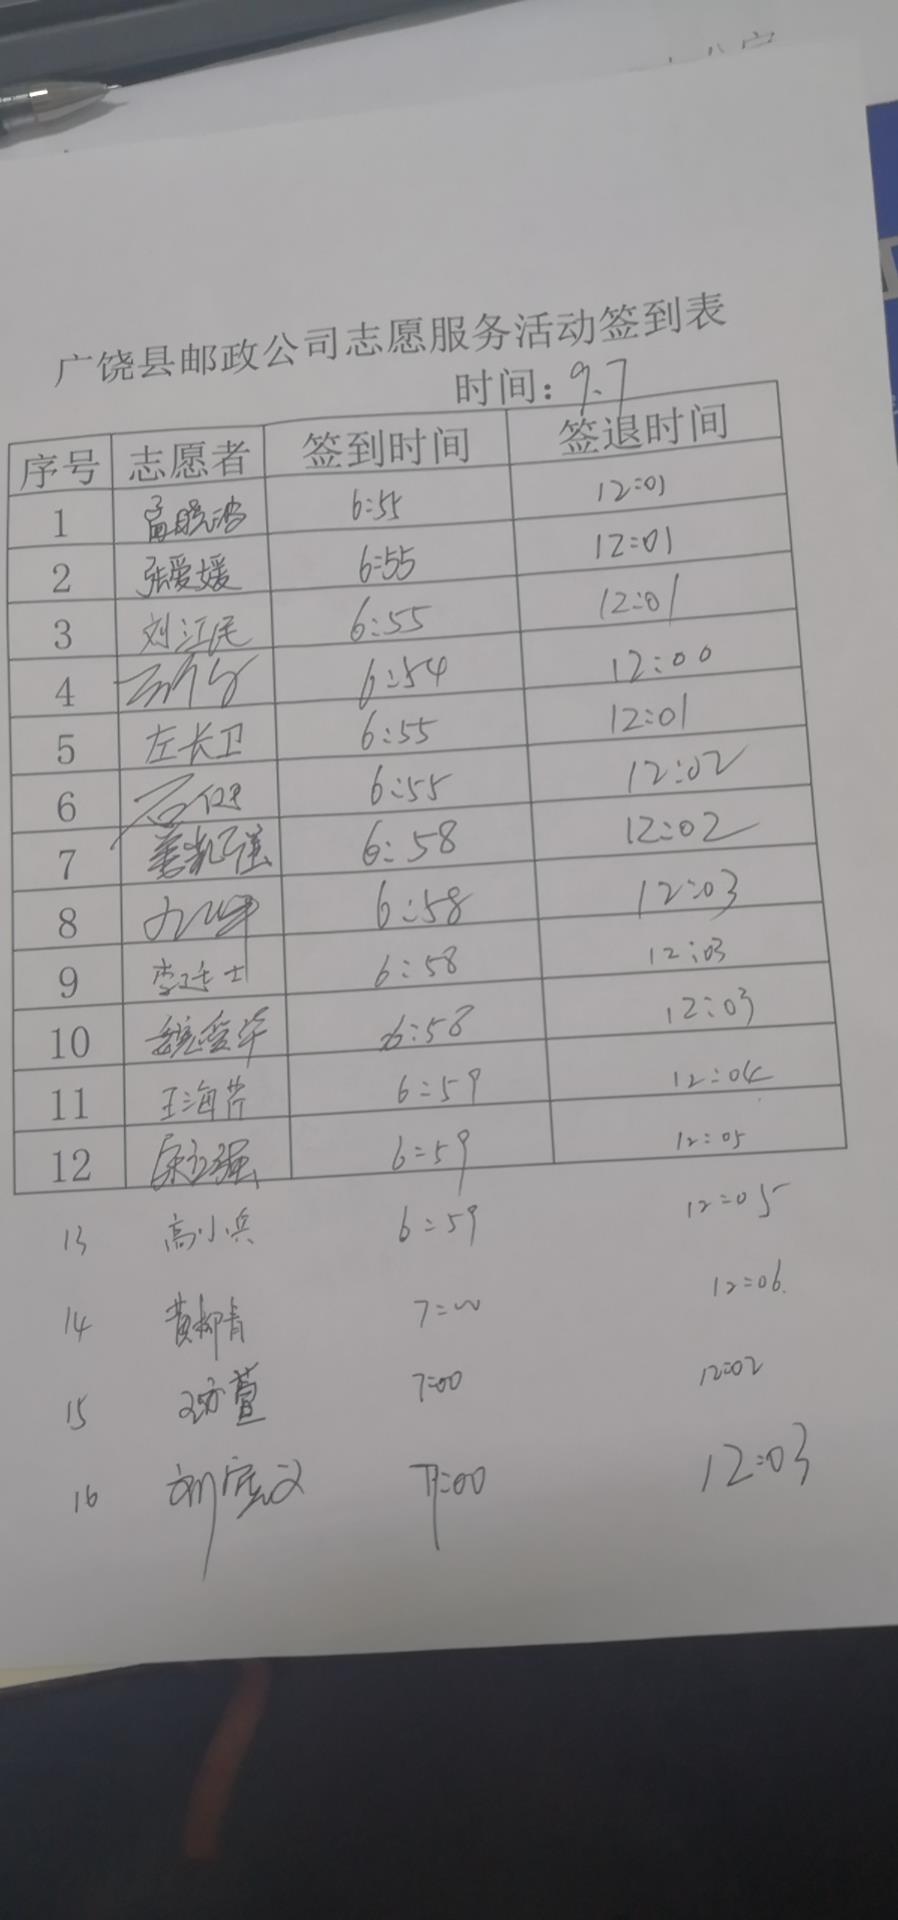 广饶县邮政公司志愿服务活动签到表
时间：9.7
序号 志愿者 签到时间 签退时间
1 6:55 12:01
2 张爱媛 6:55 12:01
3 刘江民 6:55 12:01
4 6:54 12:00
5 左长卫 6:55 12:01
6 6:55 12:02
7 6:58 12:02
8 6:58 12:03
9 李廷士 6:58 12:03
10 魏爱华 6:58 12:03
11 王海芹 6:59 12:04
12 6:59 12:05
13 高小兵 6:59 12:05
14 黄柳青 7:00 12:06
15 7:00 12:02
16 7:00 12:03